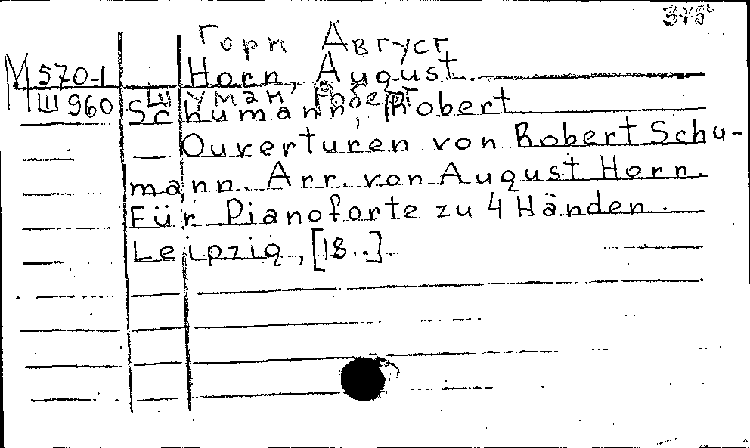 375
Горн Август
М 570-1 Horn, August
Ш 960 Шуман, Роберт
Schumann, Robert
— Ouverturen von Robert Schu-
mann. Arr. von August Horn.
Für Pianoforte zu 4 Händen.
Leipzig, [18..].